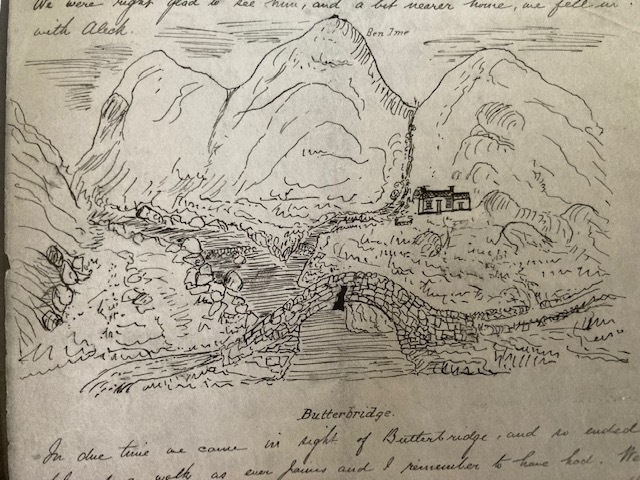 We were right glad to see him, and a bit nearer home, we fell in
with Aleck.
Ben Ime
Butterbridge.
In due time we came in sight of Butterbridge, and so ended
a walk as ever James and I remember to have had. We